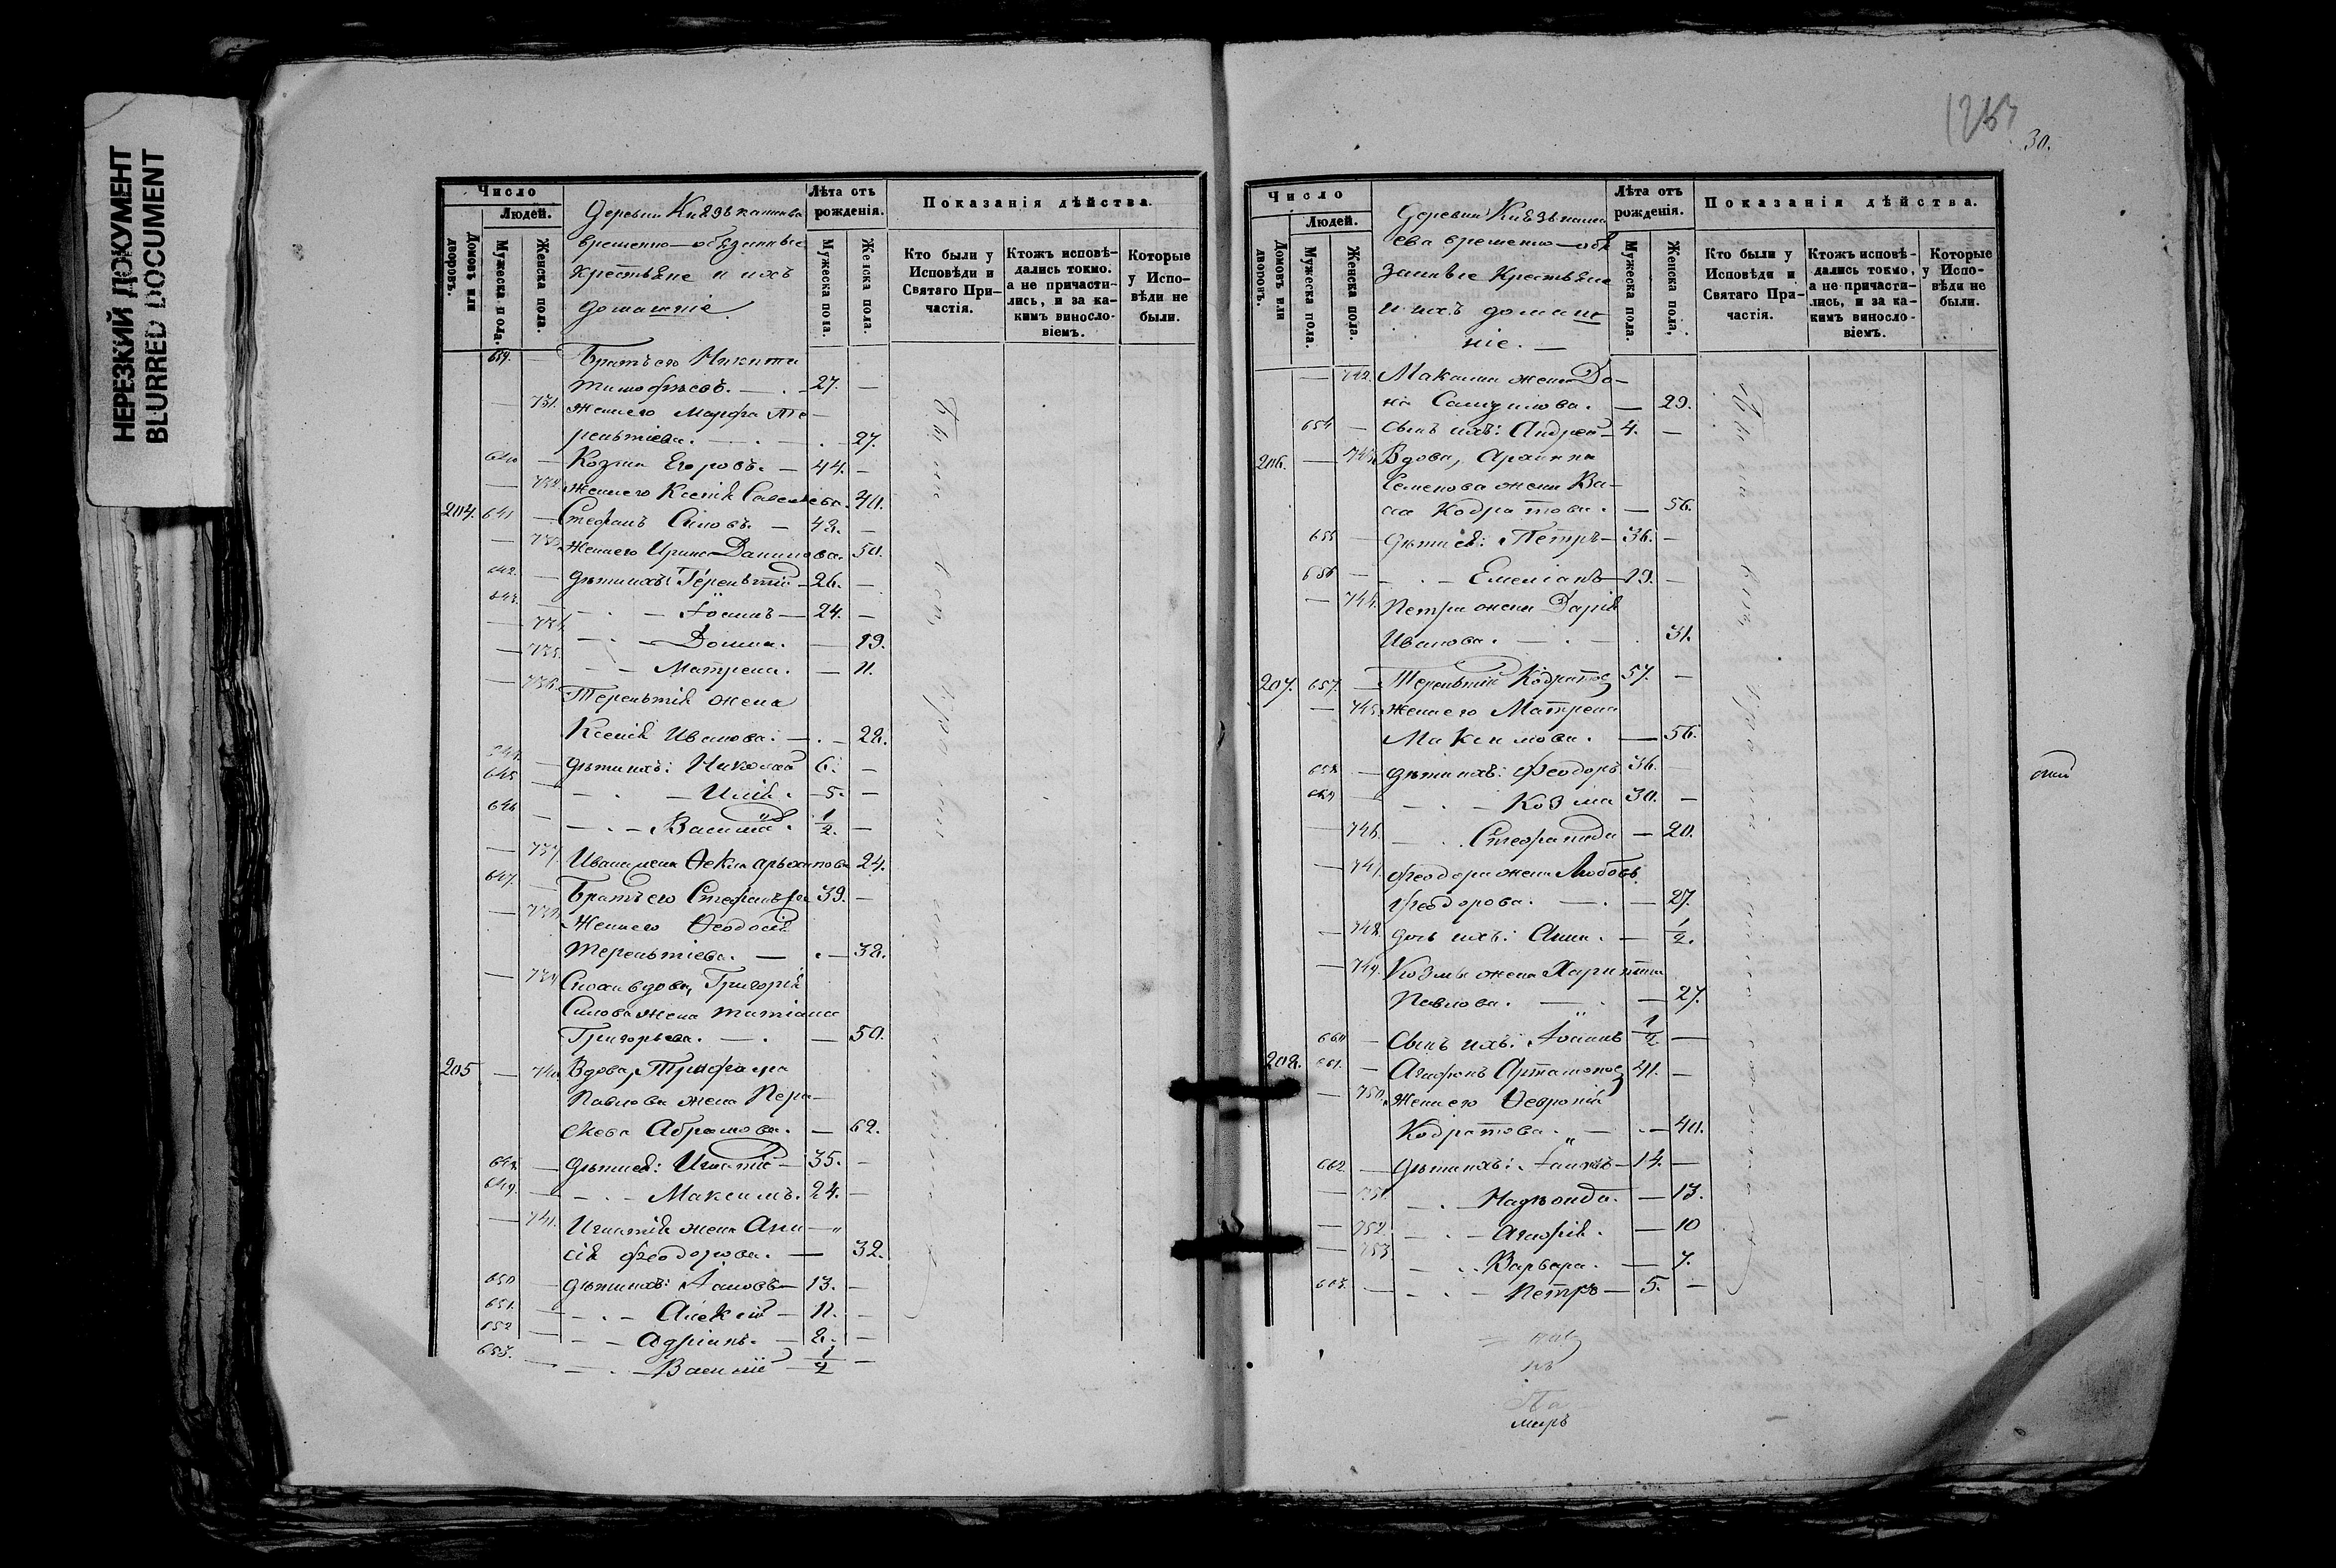 НЕРЕЗКИЙ ДОКУМЕНТ
BLURRED DOCUMENT
Число
Людей.
Домовъ или дворовъ.
Мужеска пола.
Женска пола.
Деревни Князь
временно-обязанные
крестьяне и ихъ
домашніе
Лѣта отъ рожденія.
Мужеска пола.
Женска пола.
Показанія дѣйства.
Кто были у Исповѣди и Святаго Причастія.
Ктожъ исповѣдались токмо. а не причастились, и за какимъ винословіемъ.
Которые у Исповѣди не были.
639. — Братъ его Никита
Тимофеевъ. — 27. —
— 731. Жена его Марфа Те-
рентіева. — 27.
640 — Козма Егоровъ. — 44. —
— 732. Жена его Ксенія Савельева. 40.
204. 641 — Стефанъ Силовъ. — 42. —
— 733. Жена его Ирина Данилова. 50.
642. — дѣти ихъ: Терентій — 26. —
643. — Іоаннъ — 24. —
— 734. — Домна. — 19.
— 735. — Матрена. — 11.
— 736. Терентія жена
Ксенія Иванова. — 28.
644. — дѣти ихъ: Николай 6. —
645 — Илія. — 5. —
646 — Василій. 1/2. —
— 737. Ивана жена Ѳекла Архипова 24.
647. — Братъ его Стефанъ 39. —
— 738. Жена его Ѳеодосія
Терентіева. — 38.
— 739 Сноха вдова, Григорія
Силова жена Татіана
Григорьева. — 50.
205 — 740. Вдова, Трифона
Павлова жена Пера-
скева Абрамова. — 62.
648. — дѣти ея: Игнатій — 35. —
649. — Максимъ. 24. —
— 741. Игнатія жена Ани-
сія Феодорова. — 32.
650 — дѣти ихъ: Іаковъ — 13. —
651. — Алексій — 11. —
652 — Адріанъ. — 2. —
653. — Василій — 1/2 —
30.
Число
Людей.
Домовъ или дворовъ.
Мужеска пола.
Женска пола,
Деревни Князь
ева временно-обя
занные Крестьяне
и ихъ домаш
ніе. —
Лѣта отъ рожденія.
Мужеска пола.
Женска пола,
Показанія дѣйства.
Кто были у Исповѣди и Святаго Причастія.
Ктожъ исповѣдались токмо, а не причастились, и за какимъ винословіемъ.
Которые у Исповѣди не были.
— 742. Максима жена До-
на Самуилова. — 29.
654 — Сынъ ихъ: Андрей — 4. —
206. — 743. Вдова,
Семенова жена Ва-
Кодратова. — 56.
655 — дѣти ея: Петръ — 36. —
656 — Емеліанъ — 19. —
— 744. Петра жена Дарія
Иванова. — 31.
207. 657. — Терентій Кодратов 57. —
— 745. Жена его Матрена
Максимова. — 56.
658 — дѣти ихъ: Феодоръ 36. —
659 — Козма 30. —
— 746. Стефанида — 20.
— 747. Феодора жена Любовь
Феодорова. — 27.
— 748. дочь ихъ: Анна. — 1/2.
— 749. Козмы жена Харитина
Павлова. — 27.
660 — Сынъ ихъ: Іоаннъ 1/2 —
208. 661. — Агафонъ Артамонов 41. —
— 750. Жена его Ѳевронія
Кодратова. — 40.
662. — дѣти ихъ: Іаковъ — 14. —
— 751. Надежда. — 13.
— 752. Агафія. — 10
— 753. Варвара. — 7.
663. — Петръ — 5. —